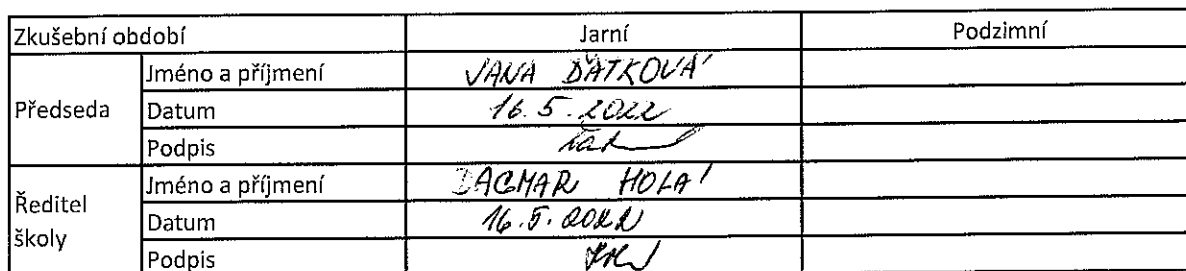 Zkušební období Jarní Podzimní
Předseda Jméno a příjmení JANA ĎATKOVÁ
Datum 16.5.2022
Podpis
Ředitel školy Jméno a příjmení DAGMAR HOLÁ
Datum 16.5.2022
Podpis